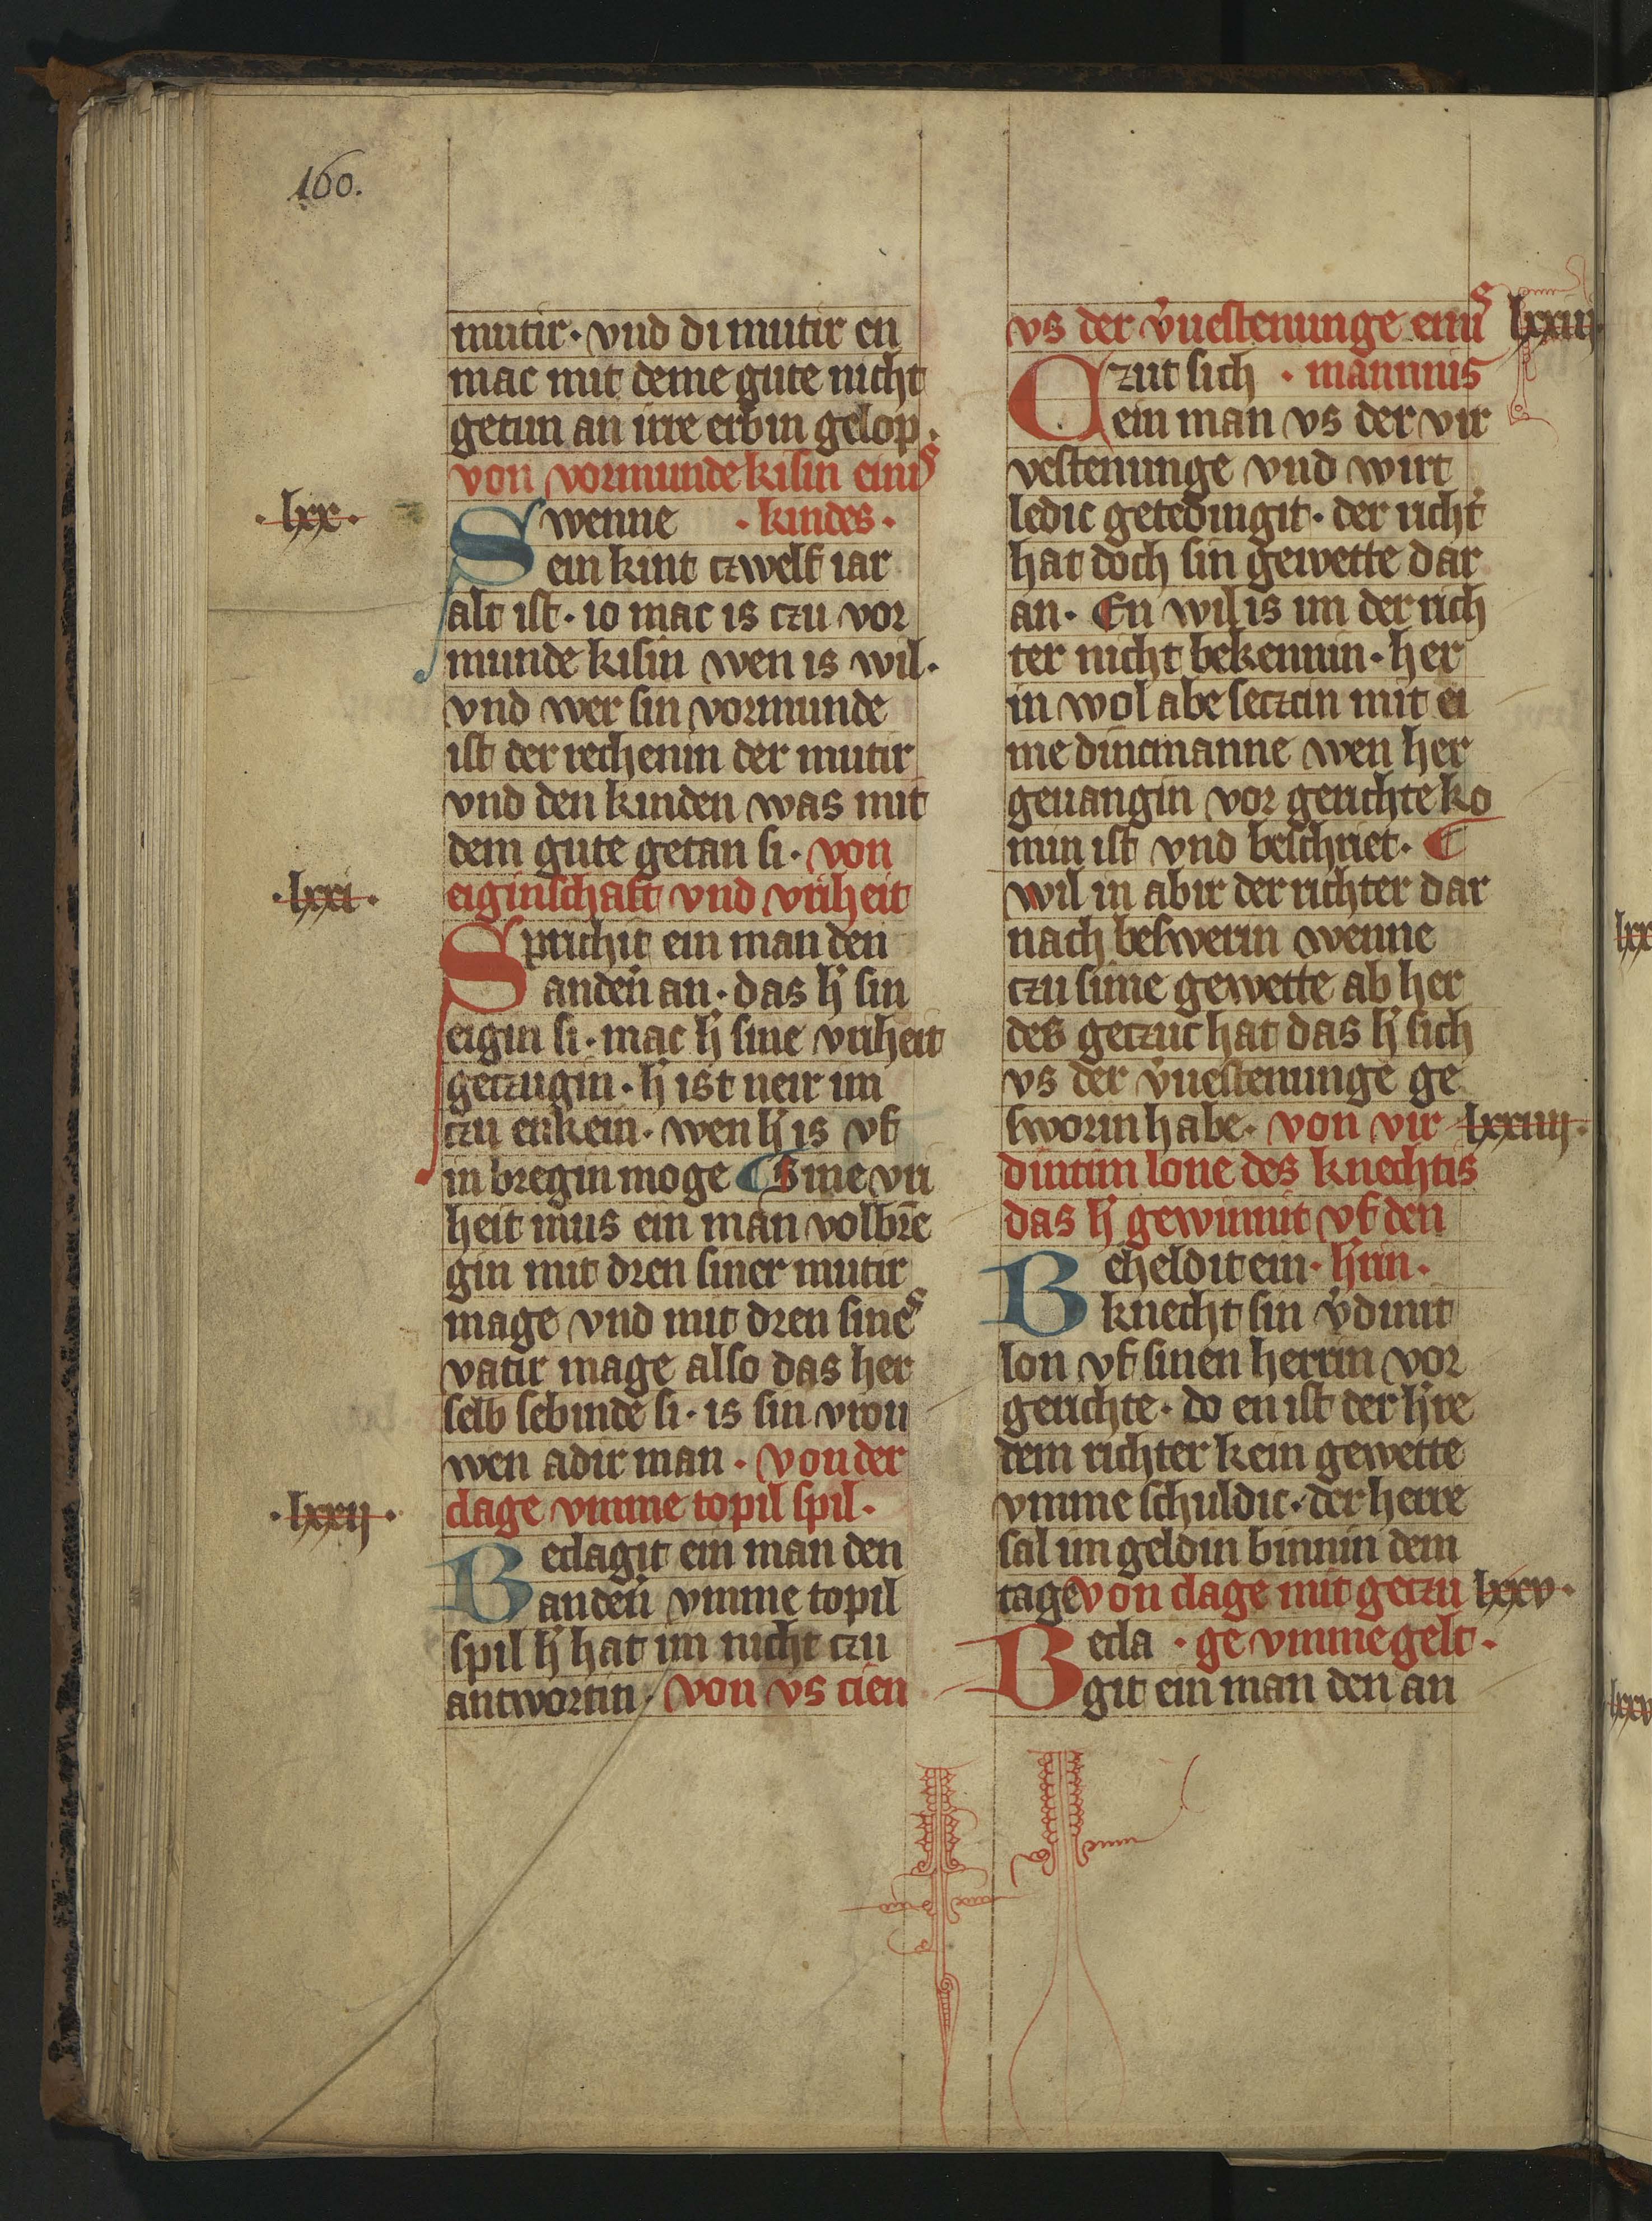 160.
mutir · vnd di mutir en
mac mit deme gute nicht
getun an irre erbin gelop ·
von vormunde kisin einis
· lxx ·
Swenne · kindes ·
ein kint czwelf iar
alt ist · io mac is czu vor
munde kisin wen is wil ·
vnd wer sin vormunde
ist der rechenin der mutir
vnd den kinden was mit
dem gute getan si · von
· lxxi ·
eiginschaft vnd vriheit
Sprichit ein man den
anden̄ an · das h̄ sin
eigin si · mac h̄ sine vriheit
geczugin · h̄ ist neir im
czu enkein · wen h̄ is vf
in bregin moge ¶ Sine vri
heit mus ein man volbre
gin mit dren siner mutir
mage vnd mit dren sines
vatir mage also das her
selb sebinde si · is sin vrou
wen adir man · von der
· lxxij ·
clage vmme topil spil ·
Beclagit ein man den
anden̄ vmme topil
spil h̄ hat im nicht czu
antwortin · von vs cien
vs der v̄uestenunge einis lxxiij ·
Czut sich · mannnis
ein man vs der vir
vestenunge vnd wirt
ledic getedingit · der richt̄
hat doch sin gewette dar
an · En wil is im der rich
ter nicht bekennin · her
in wol abe seczcin mit ei
me dincmanne wen her
geuangin vor gerichte ko
min ist vnd beschriet · ¶
wil in abir der richter dar
nach beswerin wenne
czu sime gewette ab her
des geczuc hat das h̄ sich
vs der v̄uestenunge ge
sworin habe · von vir lxxiiij ·
dintim lone des knechtis
das h̄ gewinnit vf den
Beheldit ein · h̄rin ·
knecht sin v̄dinit
lon vf sinen herrin vor
gerichte · do en ist der h̄re
dem richter kein gewette
vmme schuldic · der herre
sal im geldin binnin dem
tage von clage mit geczu lxxv ·
Becla · ge vmme gelt ·
git ein man den an